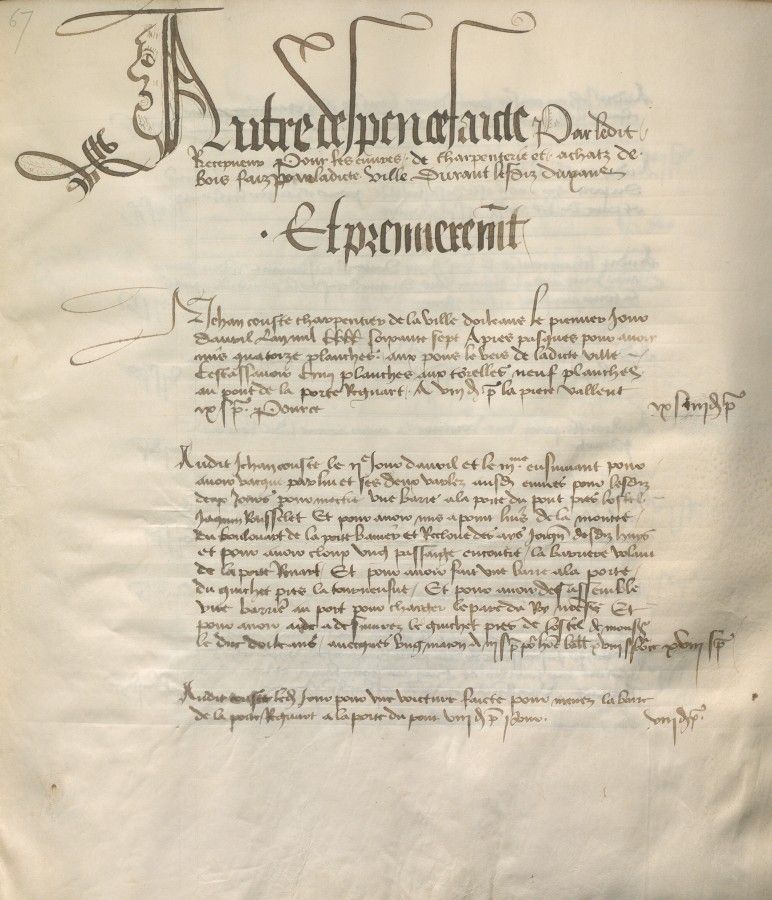 67
Autre despence faicte Par ledit
Recepveur Pour les euvres de charpenterie et achatz de
bois faiz pour ladicte ville Durant lesdiz deux ans
Et premierement
A Jehan couste charpentier de la ville dorleans le premier Jour
davril Lan mil IIIIc soixante sept Apres pasques pour avoir
mis quatorze planches aux pons leveis de ladicte ville
Cestassavoir cinq planches aux torelles neuf planches
au pont de la porte Regnart A VIII d p la piece vallent
IX s p Pource
IX s IIII d p
Audit Jehan couste le IIe Jour davril et le IIIme ensuivant pour
avoir vacque par lui et ses deux varlez ausd euvres pour lesdiz
deux Jours pour mectre une barre a la porte du pont pres lostel
Jaquin Rousselet Et pour avoir mis a point luis de la montee
du boulouart de la porte Banier et Recloue des ais desdiz huys
et pour avoir cloup ung passaige encontre la barriere volant
de la porte Renart Et pour avoir fait une barre a la porte
du guichet pres la tourneufve Et pour avoir dessassemble
une barriere au port pour charger le pare du Roy nosss Et
pour avoir aide a desmurez le guichet pres de lostel de monss
le duc dorleans avecques
XVIII s p
Audit couste led Jour pour une voicture faicte pour mener la barre
de la porte Regnart a la porte du pont VIII d p pour
VIII d p